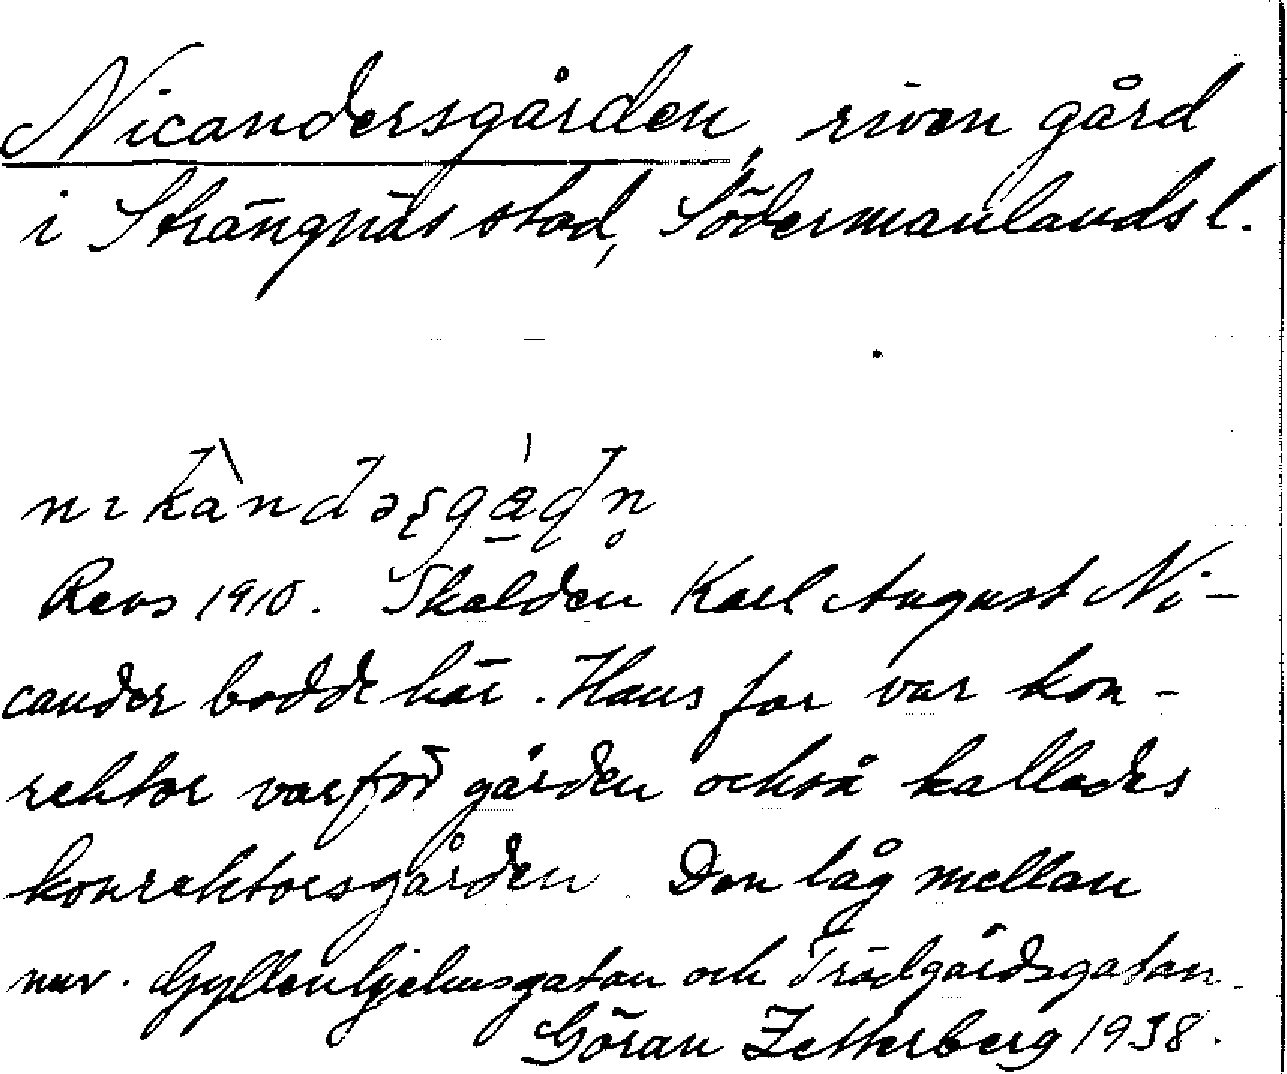 Nicandersgården, riven gård
i Strängnäs stad, Södermanlands l.
Revs 1910. Skalden Karl August Ni-
cander bodde här. Hans far var kon-
rektor varför gården också kallades
konrektorsgården. Den låg mellan
nuv. Gyllenhjelmsgatan och Trädgårdsgatan.
Göran Zetterberg 1938.